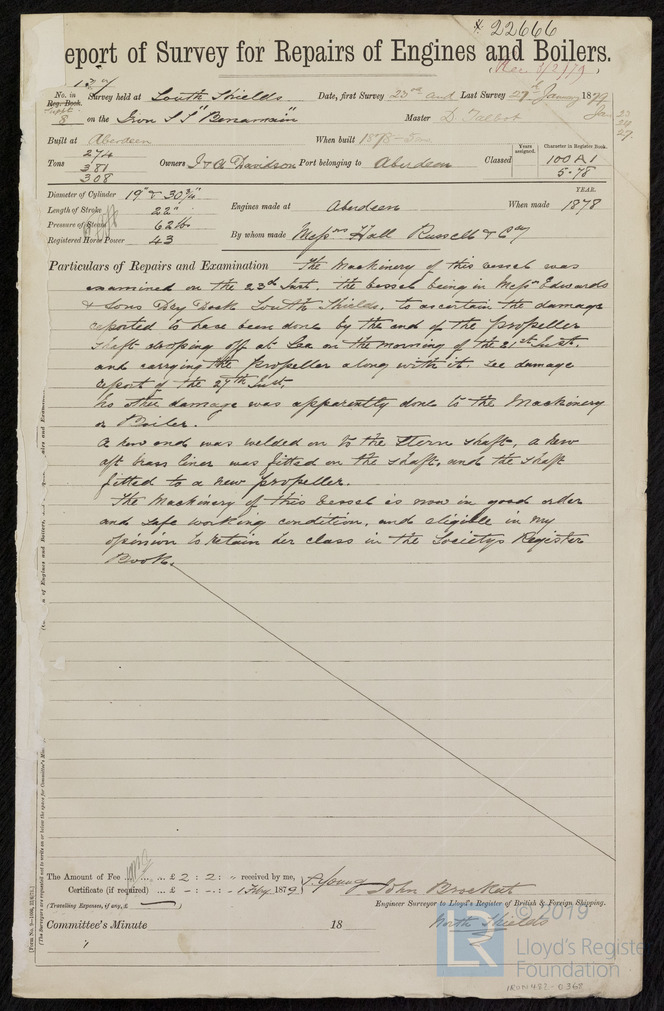 22666
eport of Survey for Repairs of Engines and Boilers.
Rec 3/2/79
No. in Reg. Book. Survey held at South Shields Date, first Survey 23rd and Last Survey 27th Jany 1879
8 on the Iron S S "Benamain" Master D. Talbot
Jan 23
24
27.
Built at Aberdeen When built 1878
Tons 274
381
308
Owners J & A Davidson Port belonging to Aberdeen Classed
Years assigned.
Character in Register Book.
100 A1
5.78
Diameter of Cylinder 19" & 30¾"
Length of Stroke 22"
Pressure of Steam 62 lbs
Registered Horse Power 43
Engines made at Aberdeen When made
YEAR.
1878
By whom made Messrs Hall Russell & Coy
Particulars of Repairs and Examination The Machinery of this vessel was
examined on the 23rd Inst. the vessel being in Messrs Edwards
& Sons Dry Dock South Shields, to ascertain the damage
reported to have been done by the end of the propeller
shaft dropping off at Sea on the morning of the 21st Inst.
and carrying the propeller along with it. see damage
report of the 27th Inst.
No other damage was apparently done to the Machinery
or Boiler.
A new end was welded on to the stern shaft, a new
aft brass liner was fitted on the shaft, and the shaft
fitted to a new propeller.
The Machinery of this vessel is now in good order
and safe working condition, and eligible in my
opinion to retain her class in the Societys Register
Book.
The Amount of Fee ... £ 2 : 2 : " received by me,
Certificate (if required) ... £ - : - : - 1 Feby 1879
(Travelling Expenses, if any, £ )
John Brockat
Engineer Surveyor to Lloyd's Register of British & Foreign Shipping.
Committee's Minute 18
North Shields
© 2019
LR
Lloyd's Register
Foundation
IRON422-0368